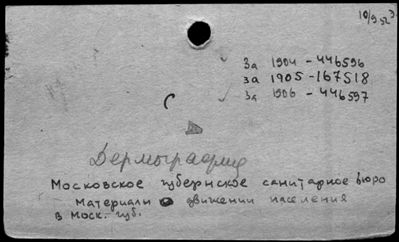 10/9 52
За 1904 - 446596
за 1905 - 167518
За 1906 - 446597
Московское губернское санитарное бюро
материалы о движении населения
в Моск. губ.